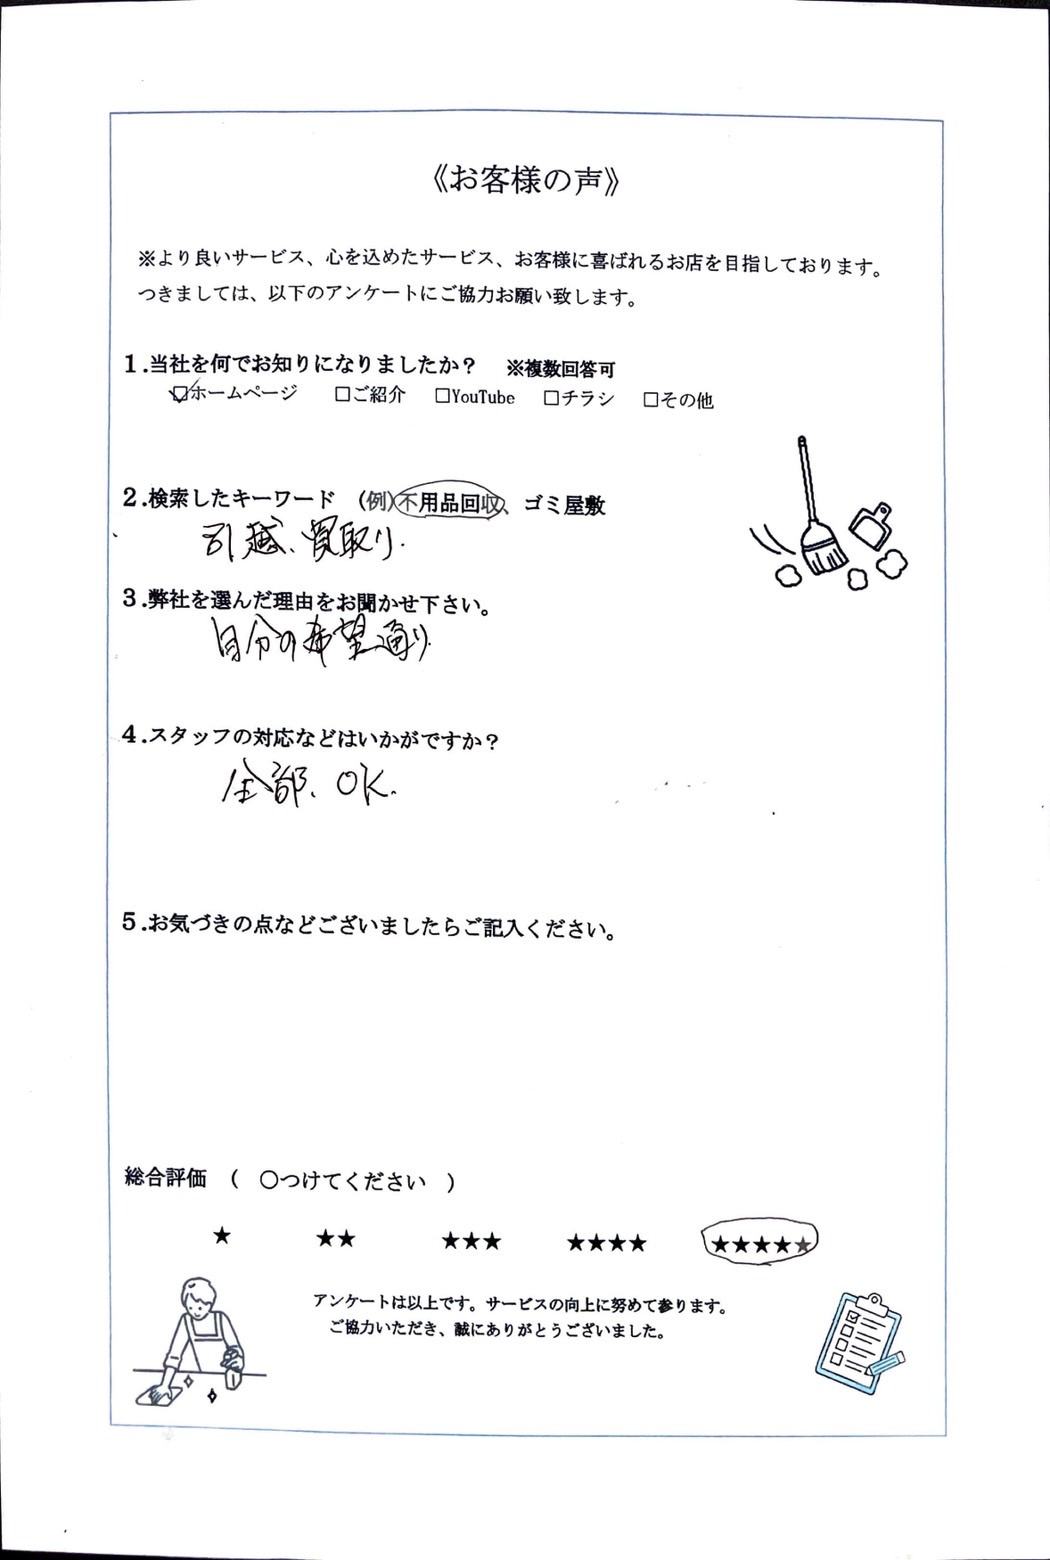 《お客様の声》
※より良いサービス、心を込めたサービス、お客様に喜ばれるお店を目指しております。
つきましては、以下のアンケートにご協力お願い致します。
1.当社を何でお知りになりましたか？ ※複数回答可
☑ホームページ □ご紹介 □YouTube □チラシ □その他
2.検索したキーワード （例）不用品回収、ゴミ屋敷
引越、買取り.
3.弊社を選んだ理由をお聞かせ下さい。
自分の希望通り.
4.スタッフの対応などはいかがですか？
全部、OK.
5.お気づきの点などございましたらご記入ください。
総合評価 （ ○つけてください ）
★ ★★ ★★★ ★★★★ ★★★★★
アンケートは以上です。サービスの向上に努めて参ります。
ご協力いただき、誠にありがとうございました。